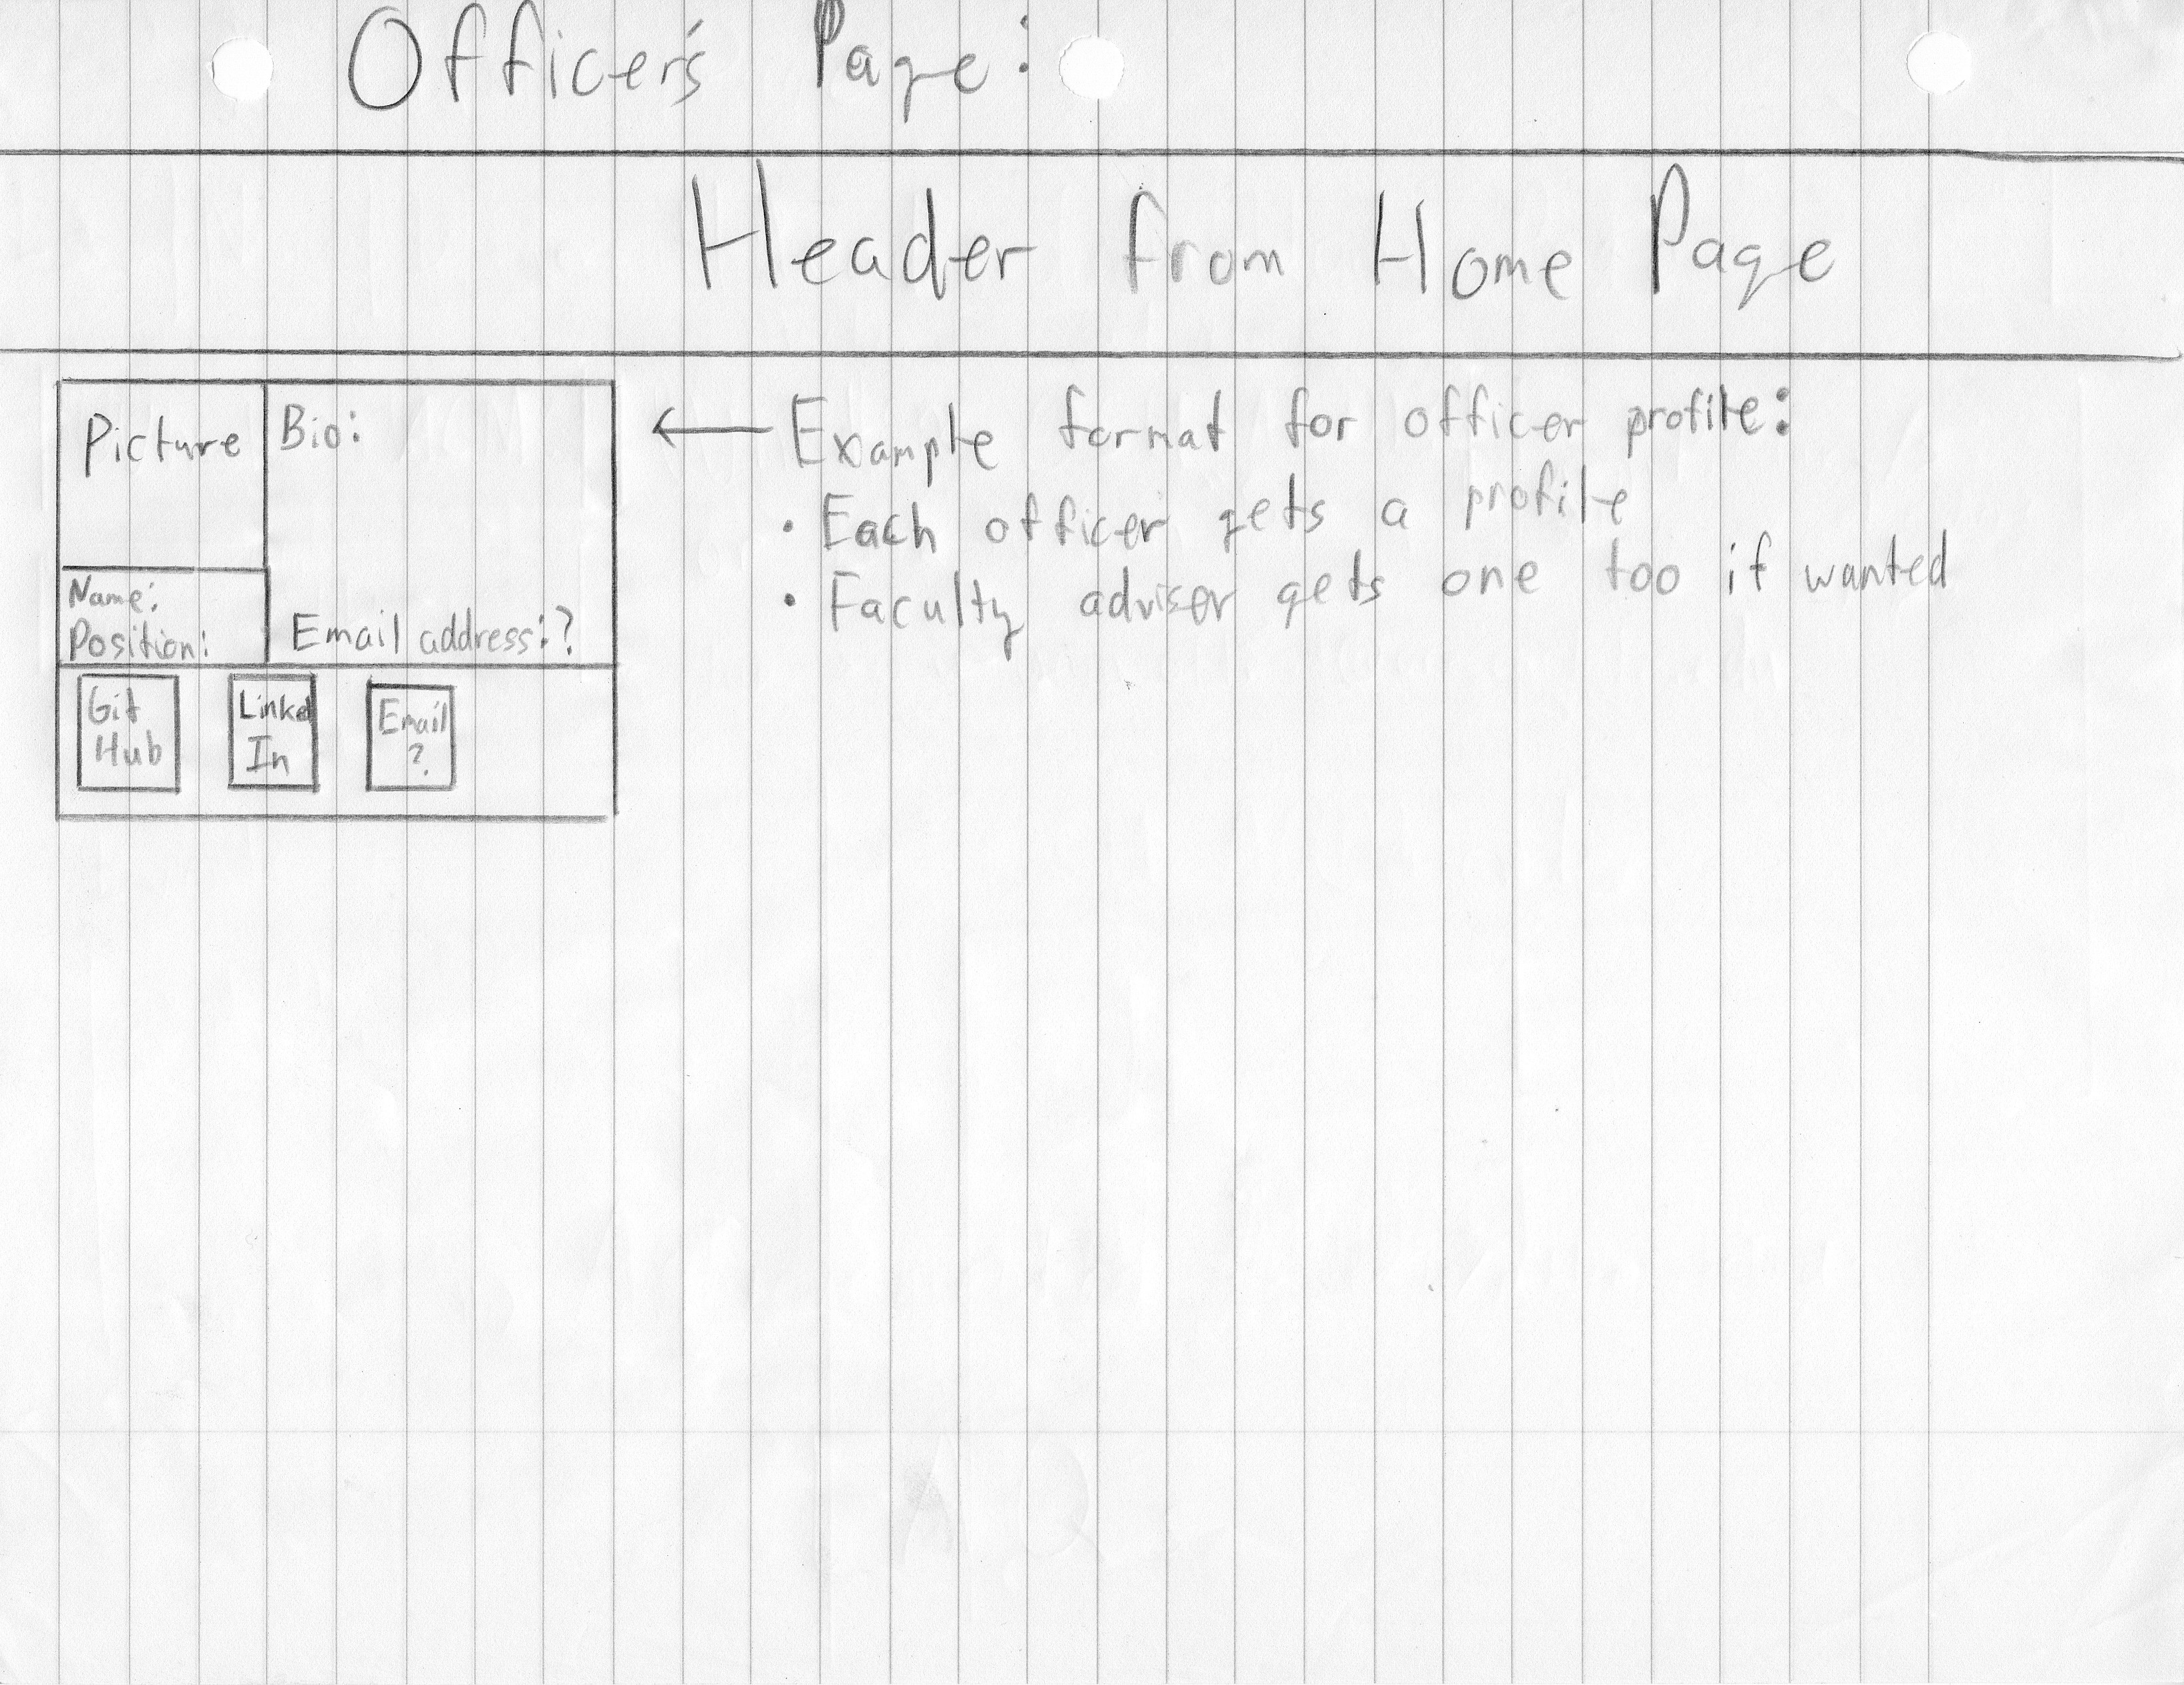 Officer's Page:
Header from Home Page
Picture
Bio:
Name:
Position:
Email address:?
Git
Hub
Linked
In
Email
?
Example format for officer profile:
• Each officer gets a profile
• Faculty adviser gets one too if wanted